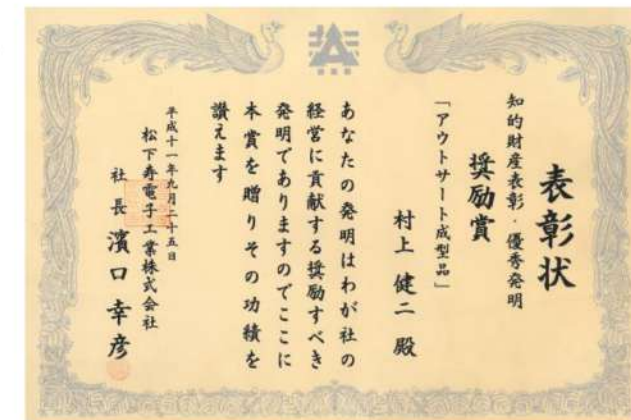 表彰状
知的財産表彰・優秀発明
奨励賞
「アウトサート成型品」
村上 健二 殿
あなたの発明はわが社の
経営に貢献する奨励すべき
発明でありますのでここに
本賞を贈りその功績を
讃えます
平成十一年九月二十五日
松下寿電子工業株式会社
社長 濱口幸彦